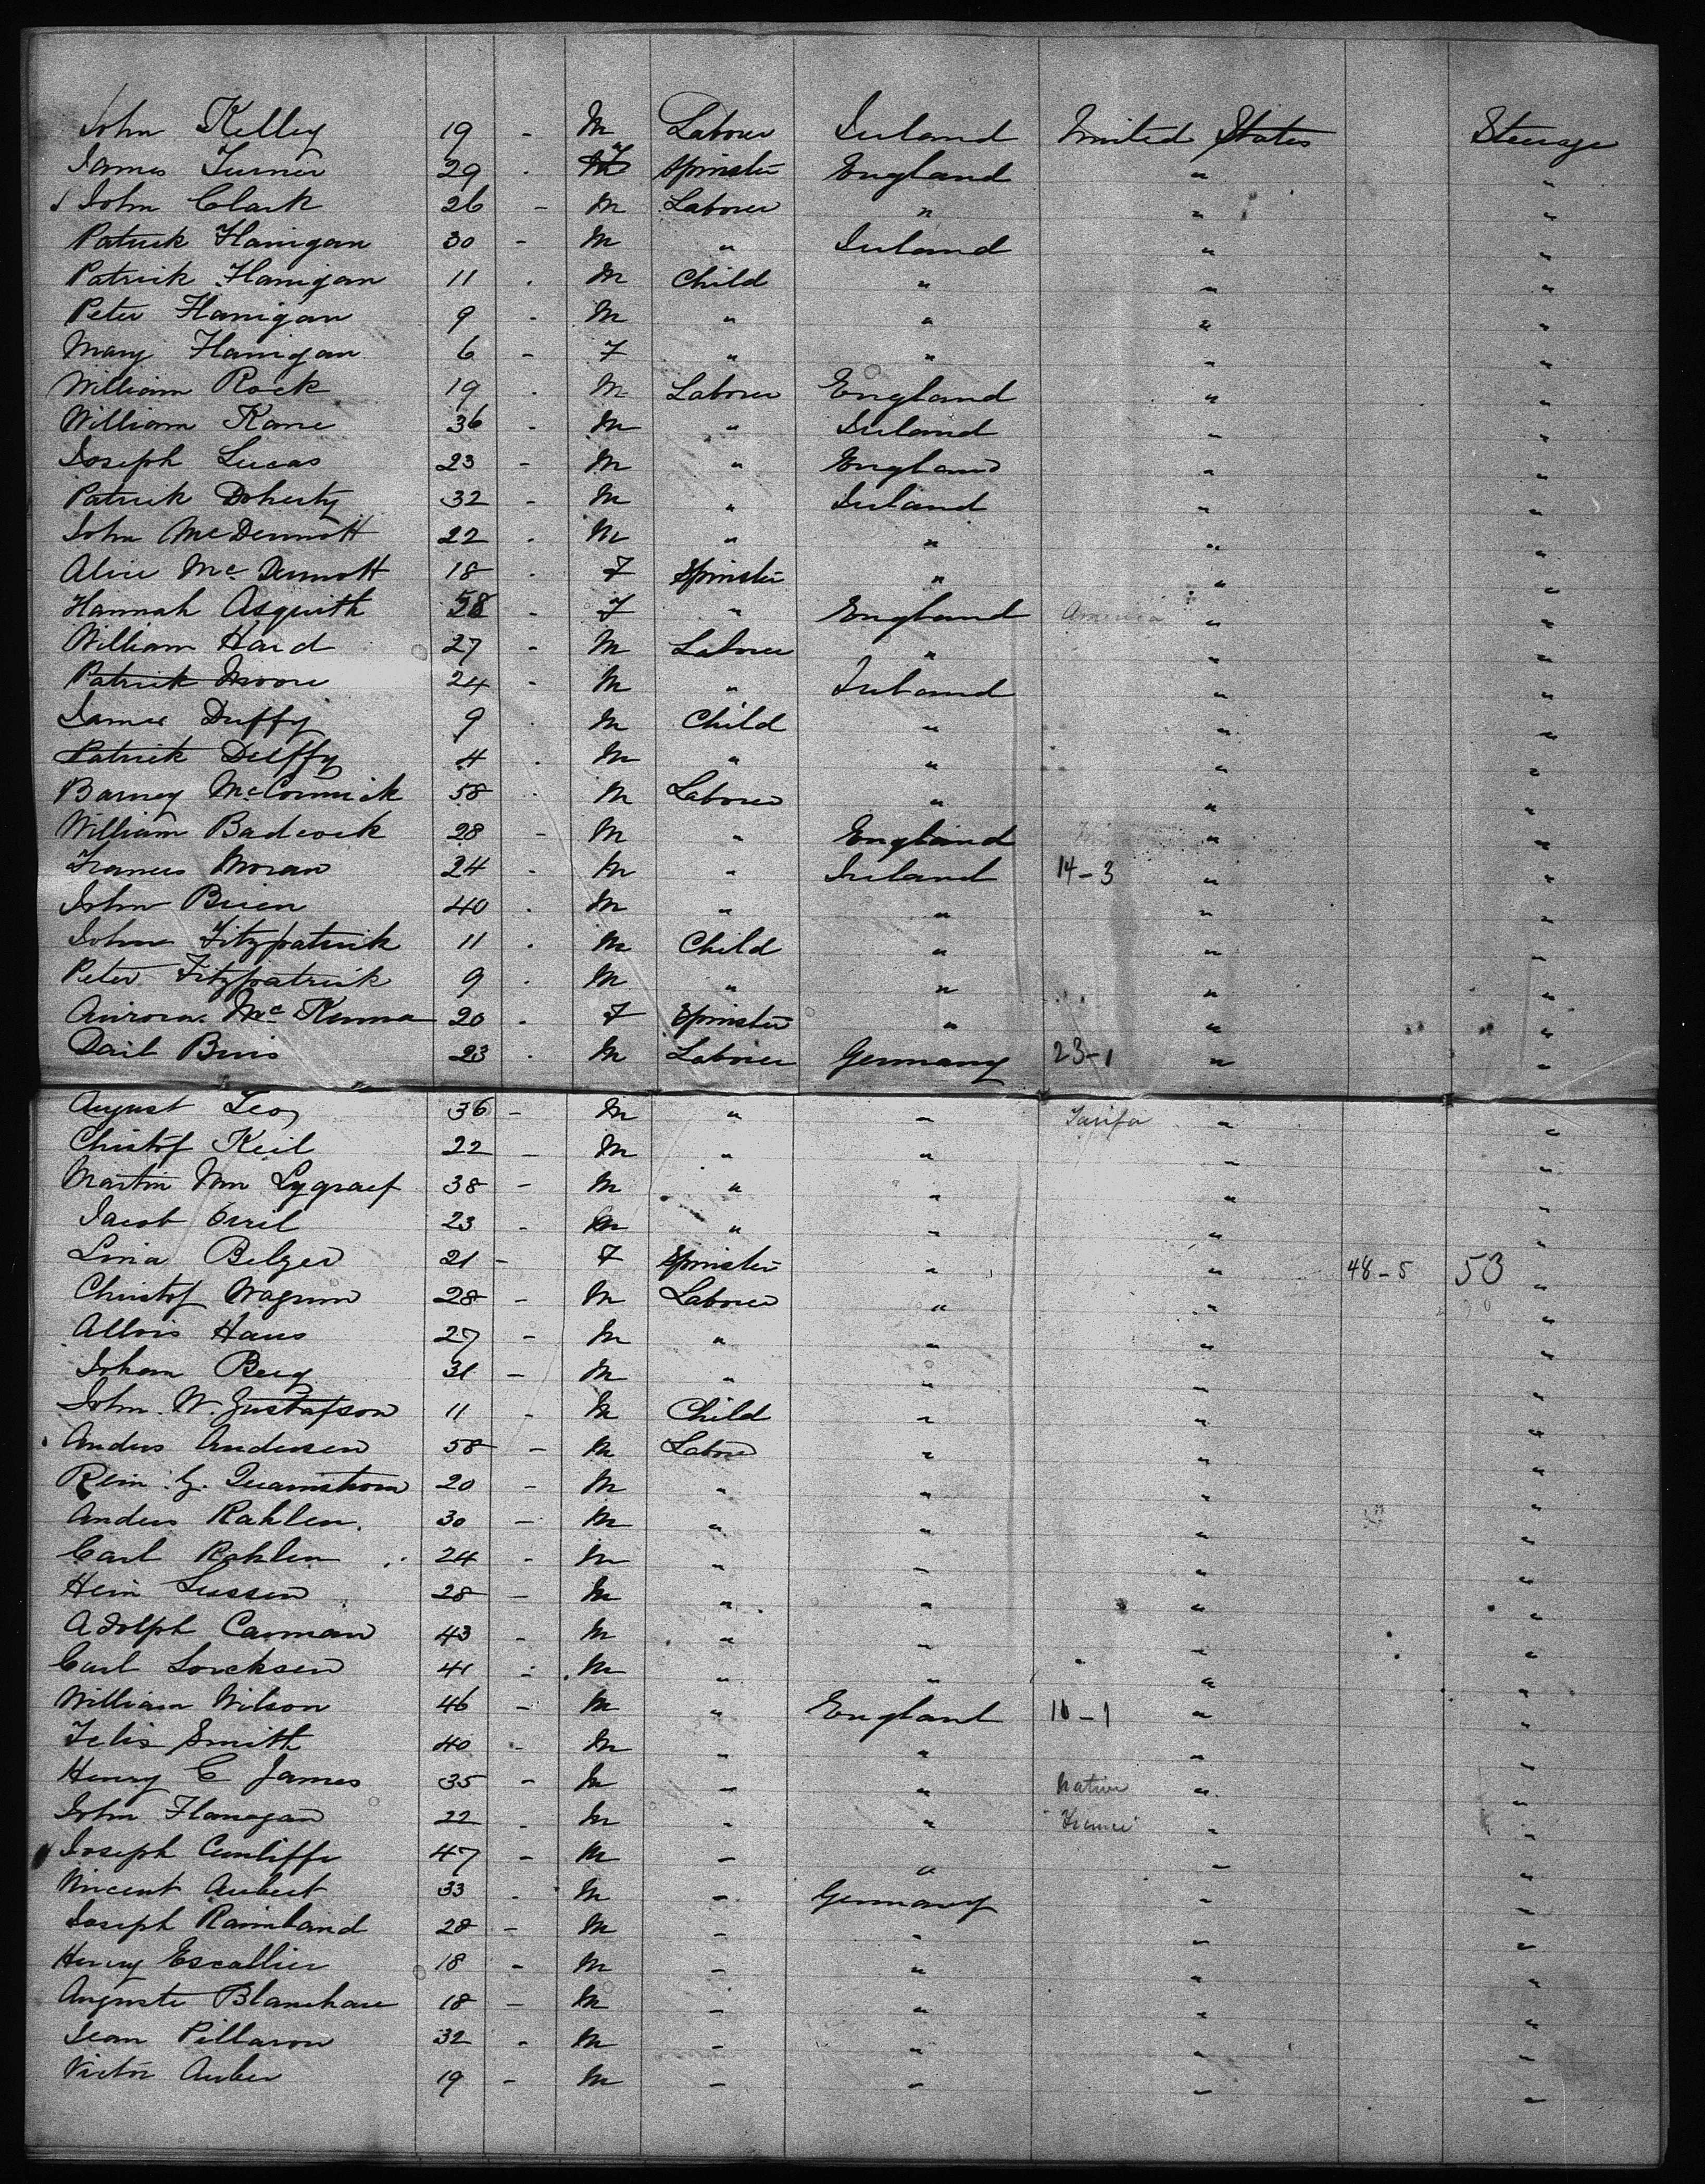 John Kelley 19 - M Laborer Ireland United States Steerage
James Turner 29 . F Spinster England " "
John Clark 26 - M Laborer " " "
Patrick Flanigan 30 - M " Ireland " "
Patrick Flanigan 11 . M Child " " "
Peter Flanigan 9 - M " " " "
Mary Flanigan 6 - F " " " "
William Rock 19 . M Laborer England " "
William Kane 36 - M " Ireland " "
Joseph Lucas 23 - M " England " "
Patrick Doherty 32 - M " Ireland " "
John McDermott 22 . M " " " "
Alice McDermott 18 . F Spinster " " "
Hannah Asquith 58 - F " England America " "
William Hard 27 - M Laborer " " "
Patrick Moore 24 - M " Ireland " "
James Duffy 9 . M Child " " "
Patrick Duffy 4 . M " " " "
Barney McCormick 58 . M Laborer " " "
William Badcock 28 - M " England " "
Frances Moran 24 - M " Ireland 14-3 " "
John Brien 40 . M " " " "
John Fitzpatrick 11 . M Child " " "
Peter Fitzpatrick 9 . M " " " "
Aurora McKenna 20 . F Spinster " " "
Dail 23 . M Laborer Germany 23-1 " "
August Leo 36 - M " " " "
Christof Keil 22 - M " " " "
Martin Wm 38 - M " " " "
Jacob 23 - M " " " "
Lina Belger 21 - F Spinster " " 48-5 53 "
Christof 28 - M Laborer " " "
Allois Haus 27 - M " " " "
Johan Berg 31 - M " " " "
John W. Gustafson 11 - M Child " " "
Anders Andersen 58 - M Labore " " "
20 - M " " " "
Anders Rahlen 30 - M " " " "
Carl Rahlen 24 - M " " " "
Hein Lussen 28 - M " " " "
Adolph Carman 43 - M " " " "
Carl Lorcksen 41 - M " " " "
William Wilson 46 - M " England 16-1 " "
Felix Smith 40 - M " " " "
Henry C James 35 - M " " Native " "
John Flanagan 22 . M " " France " "
Joseph Cunliffe 47 - M " " " "
Vincent Aubert 33 . M " Germany " "
Joseph Raimband 28 - M " " " "
Henry Escallier 18 - M " " " "
Auguste Blanchare 18 - M " " " "
Jean Pillaron 32 - M " " " "
Victor Auber 19 - M " " " "